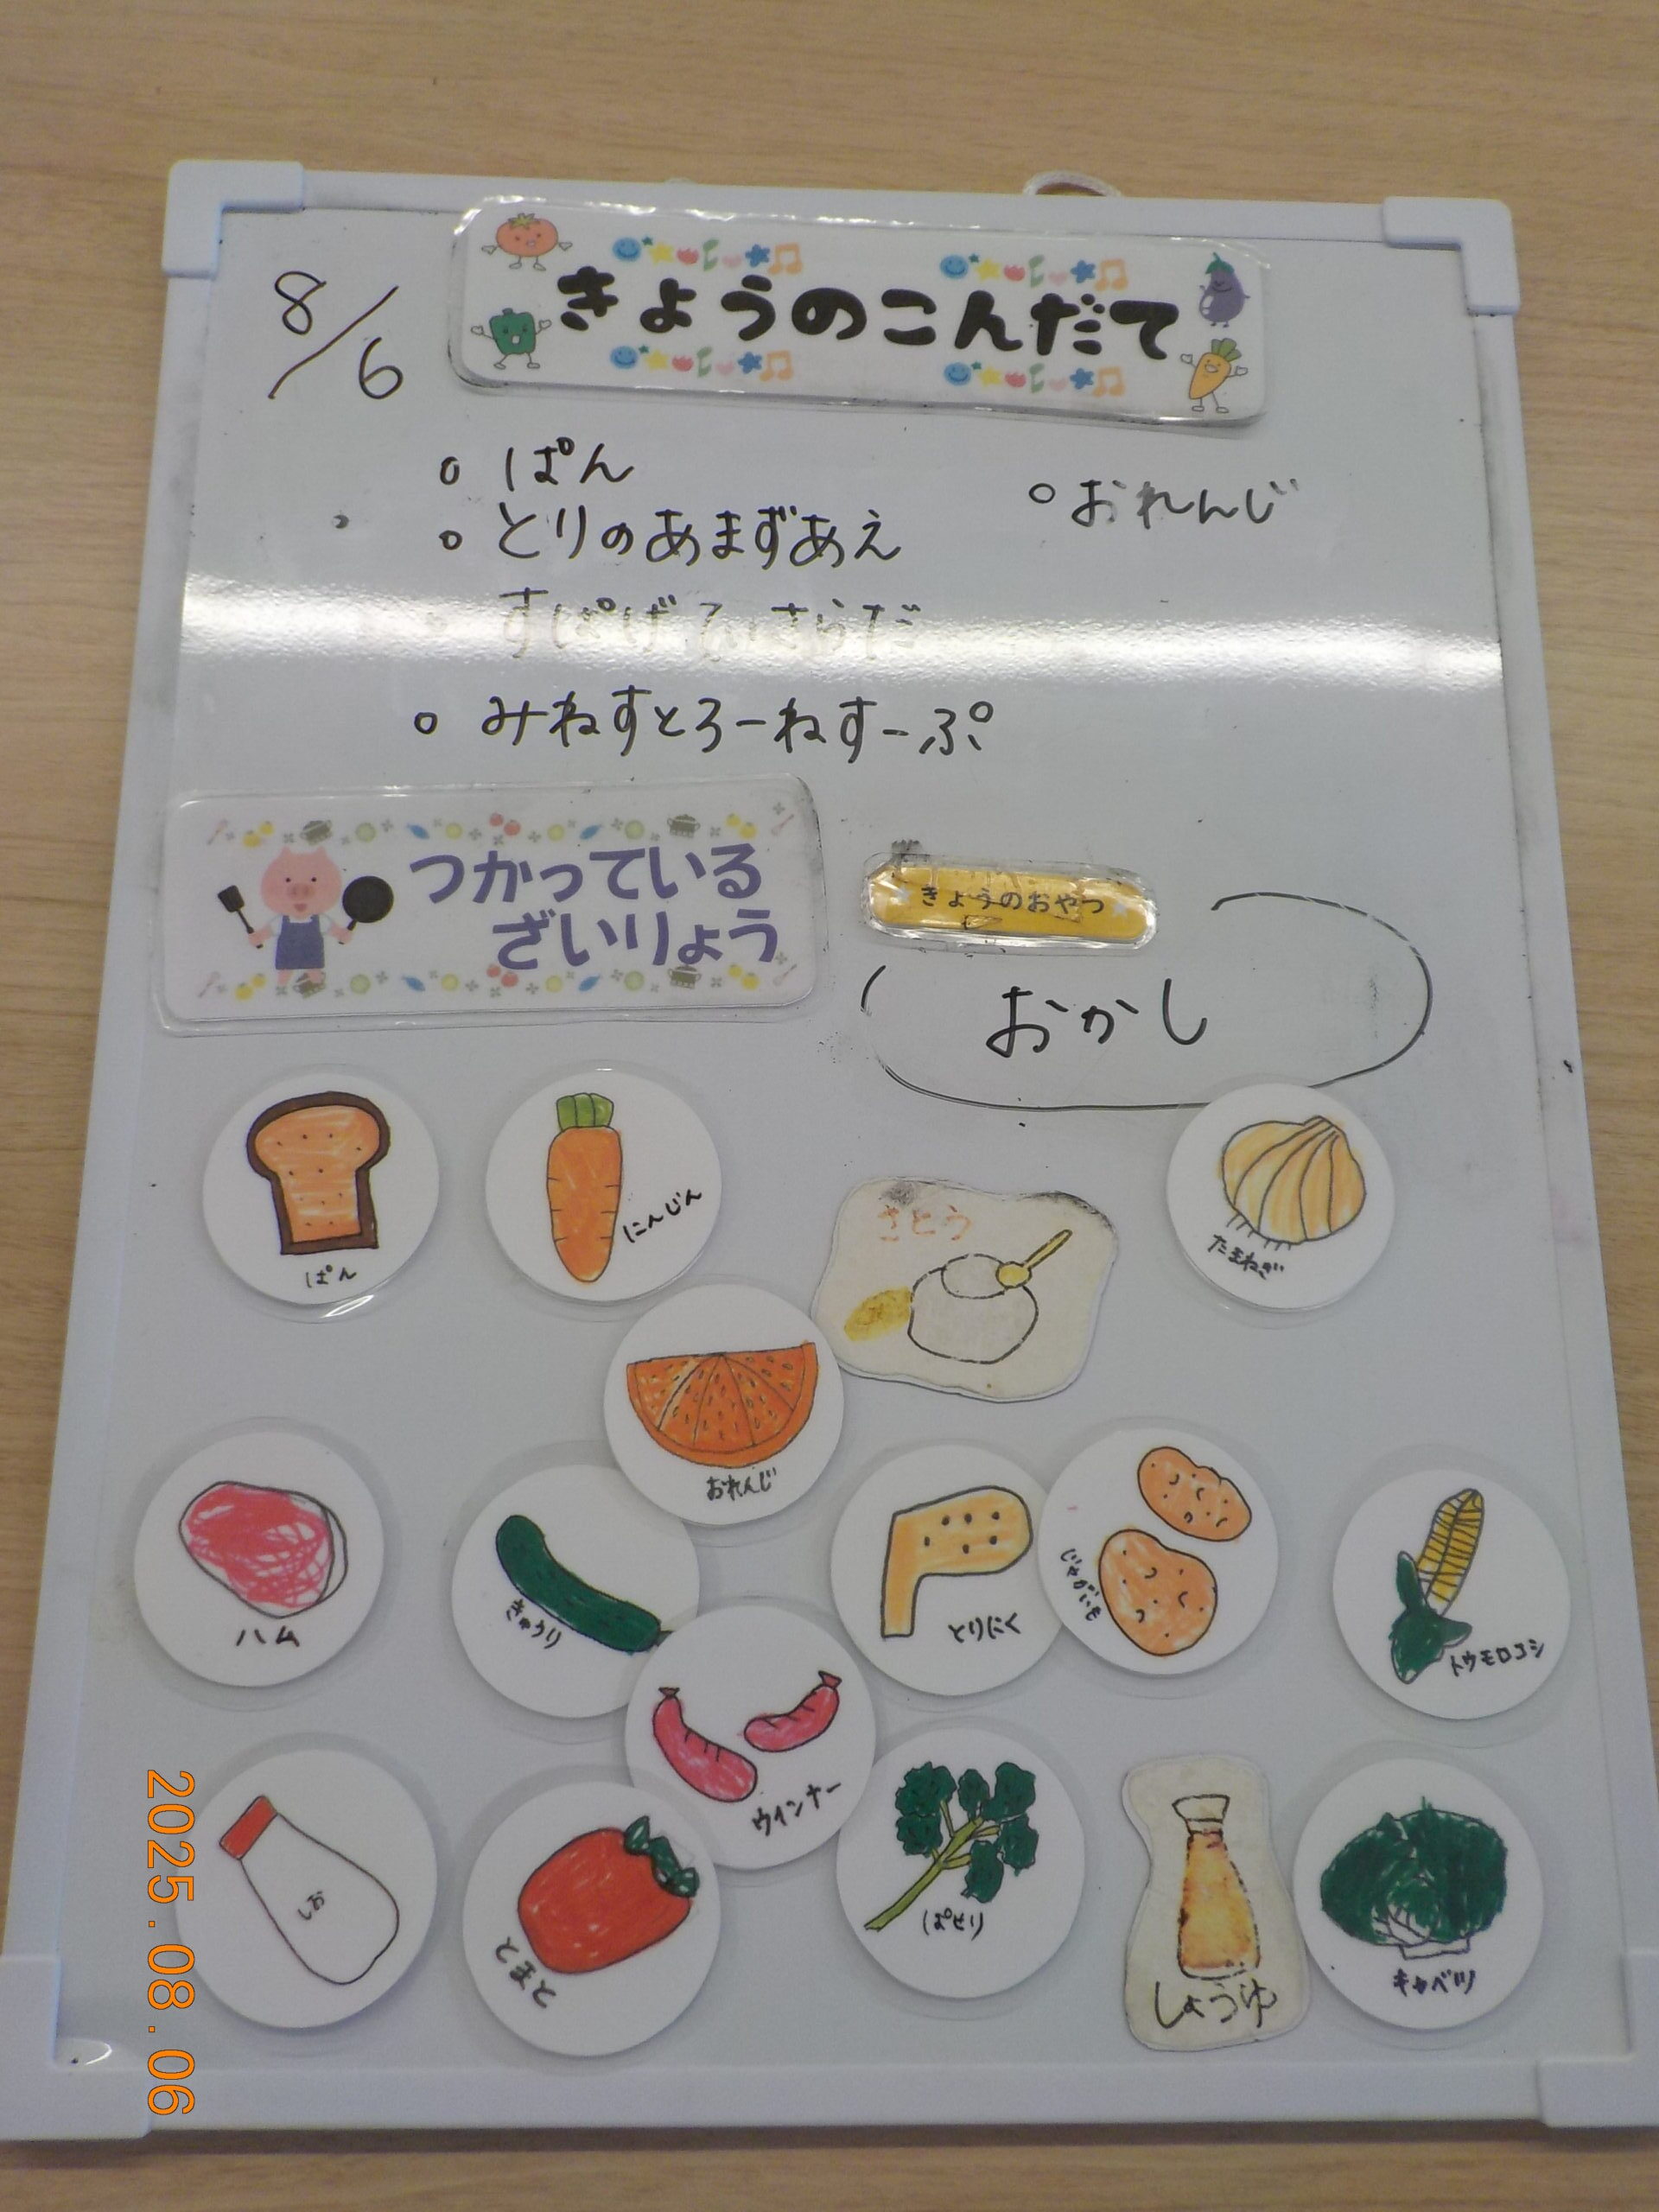 8/6
きょうのこんだて
○ ぱん
○ おれんじ
○ とりのあまずあえ
○ すぱげてぃさらだ
○ みねすとろーねすーぷ
つかっている
ざいりょう
きょうのおやつ
おかし
ぱん
にんじん
さとう
たまねぎ
おれんじ
ハム
きゅうり
とりにく
じゃがいも
トウモロコシ
ウインナー
しお
とまと
ぱせり
しょうゆ
キャベツ
2025.08.06